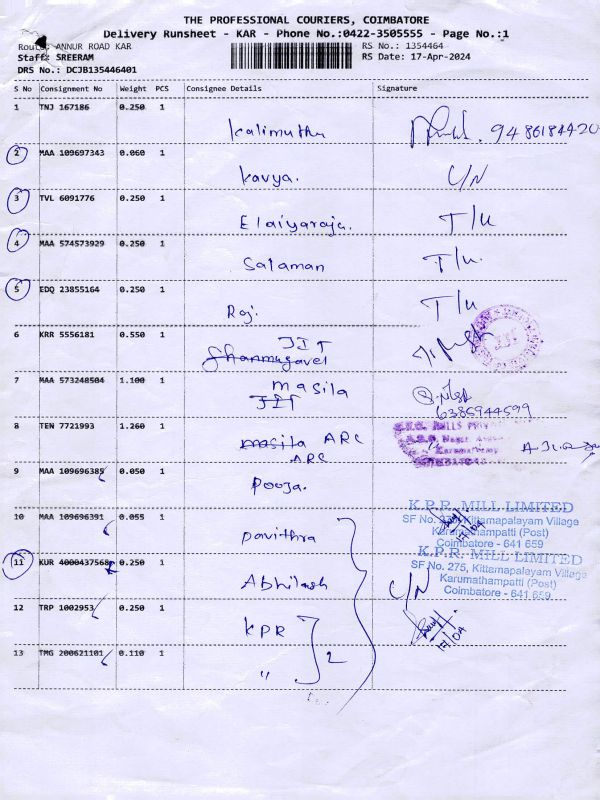 THE PROFESSIONAL COURIERS, COIMBATORE
Delivery Runsheet - KAR - Phone No.:0422-3505555 - Page No.:1
Route: ANNUR ROAD KAR
RS No.: 1354464
Staff: SREERAM
RS Date: 17-Apr-2024
DRS No.: DCJB135446401
S No Consignment No Weight PCS Consignee Details Signature
1 TNJ 167186 0.250 1
Kalimuthu 9486184420
2 MAA 109697343 0.060 1
Kavya. C/N
3 TVL 6091776 0.250 1
Elaiyaraja. T/U
4 MAA 574573929 0.250 1
Salaman T/U.
5 EDQ 23855164 0.250 1
Raj. T/U
6 KRR 5556181 0.550 1
JIT
Shanmugavel
7 MAA 573248504 1.100 1
masila
JIT
6385944599
8 TEN 7721993 1.260 1
masila ARC
ARC
9 MAA 109696385 0.050 1
Pooja.
10 MAA 109696391 0.055 1
Pavithra
K.P.R. MILL LIMITED
SF No. 275, Kittamapalayam Village
Karumathampatti (Post)
Coimbatore - 641 659
11 KUR 4000437568 0.250 1
Abhilash C/N
K.P.R. MILL LIMITED
SF No. 275, Kittamapalayam Village
Karumathampatti (Post)
Coimbatore - 641 659
12 TRP 1002953 0.250 1
KPR
17/04
13 TMG 200621101 0.110 1
" 2